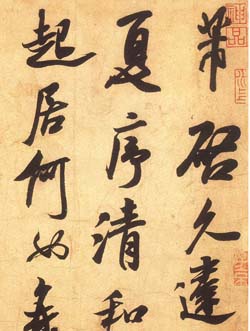 神品
芾啓久違
夏序清和
起居何如